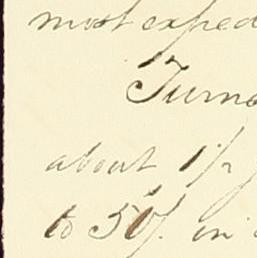 most exped
Turne
about 1/2
to 50/. in